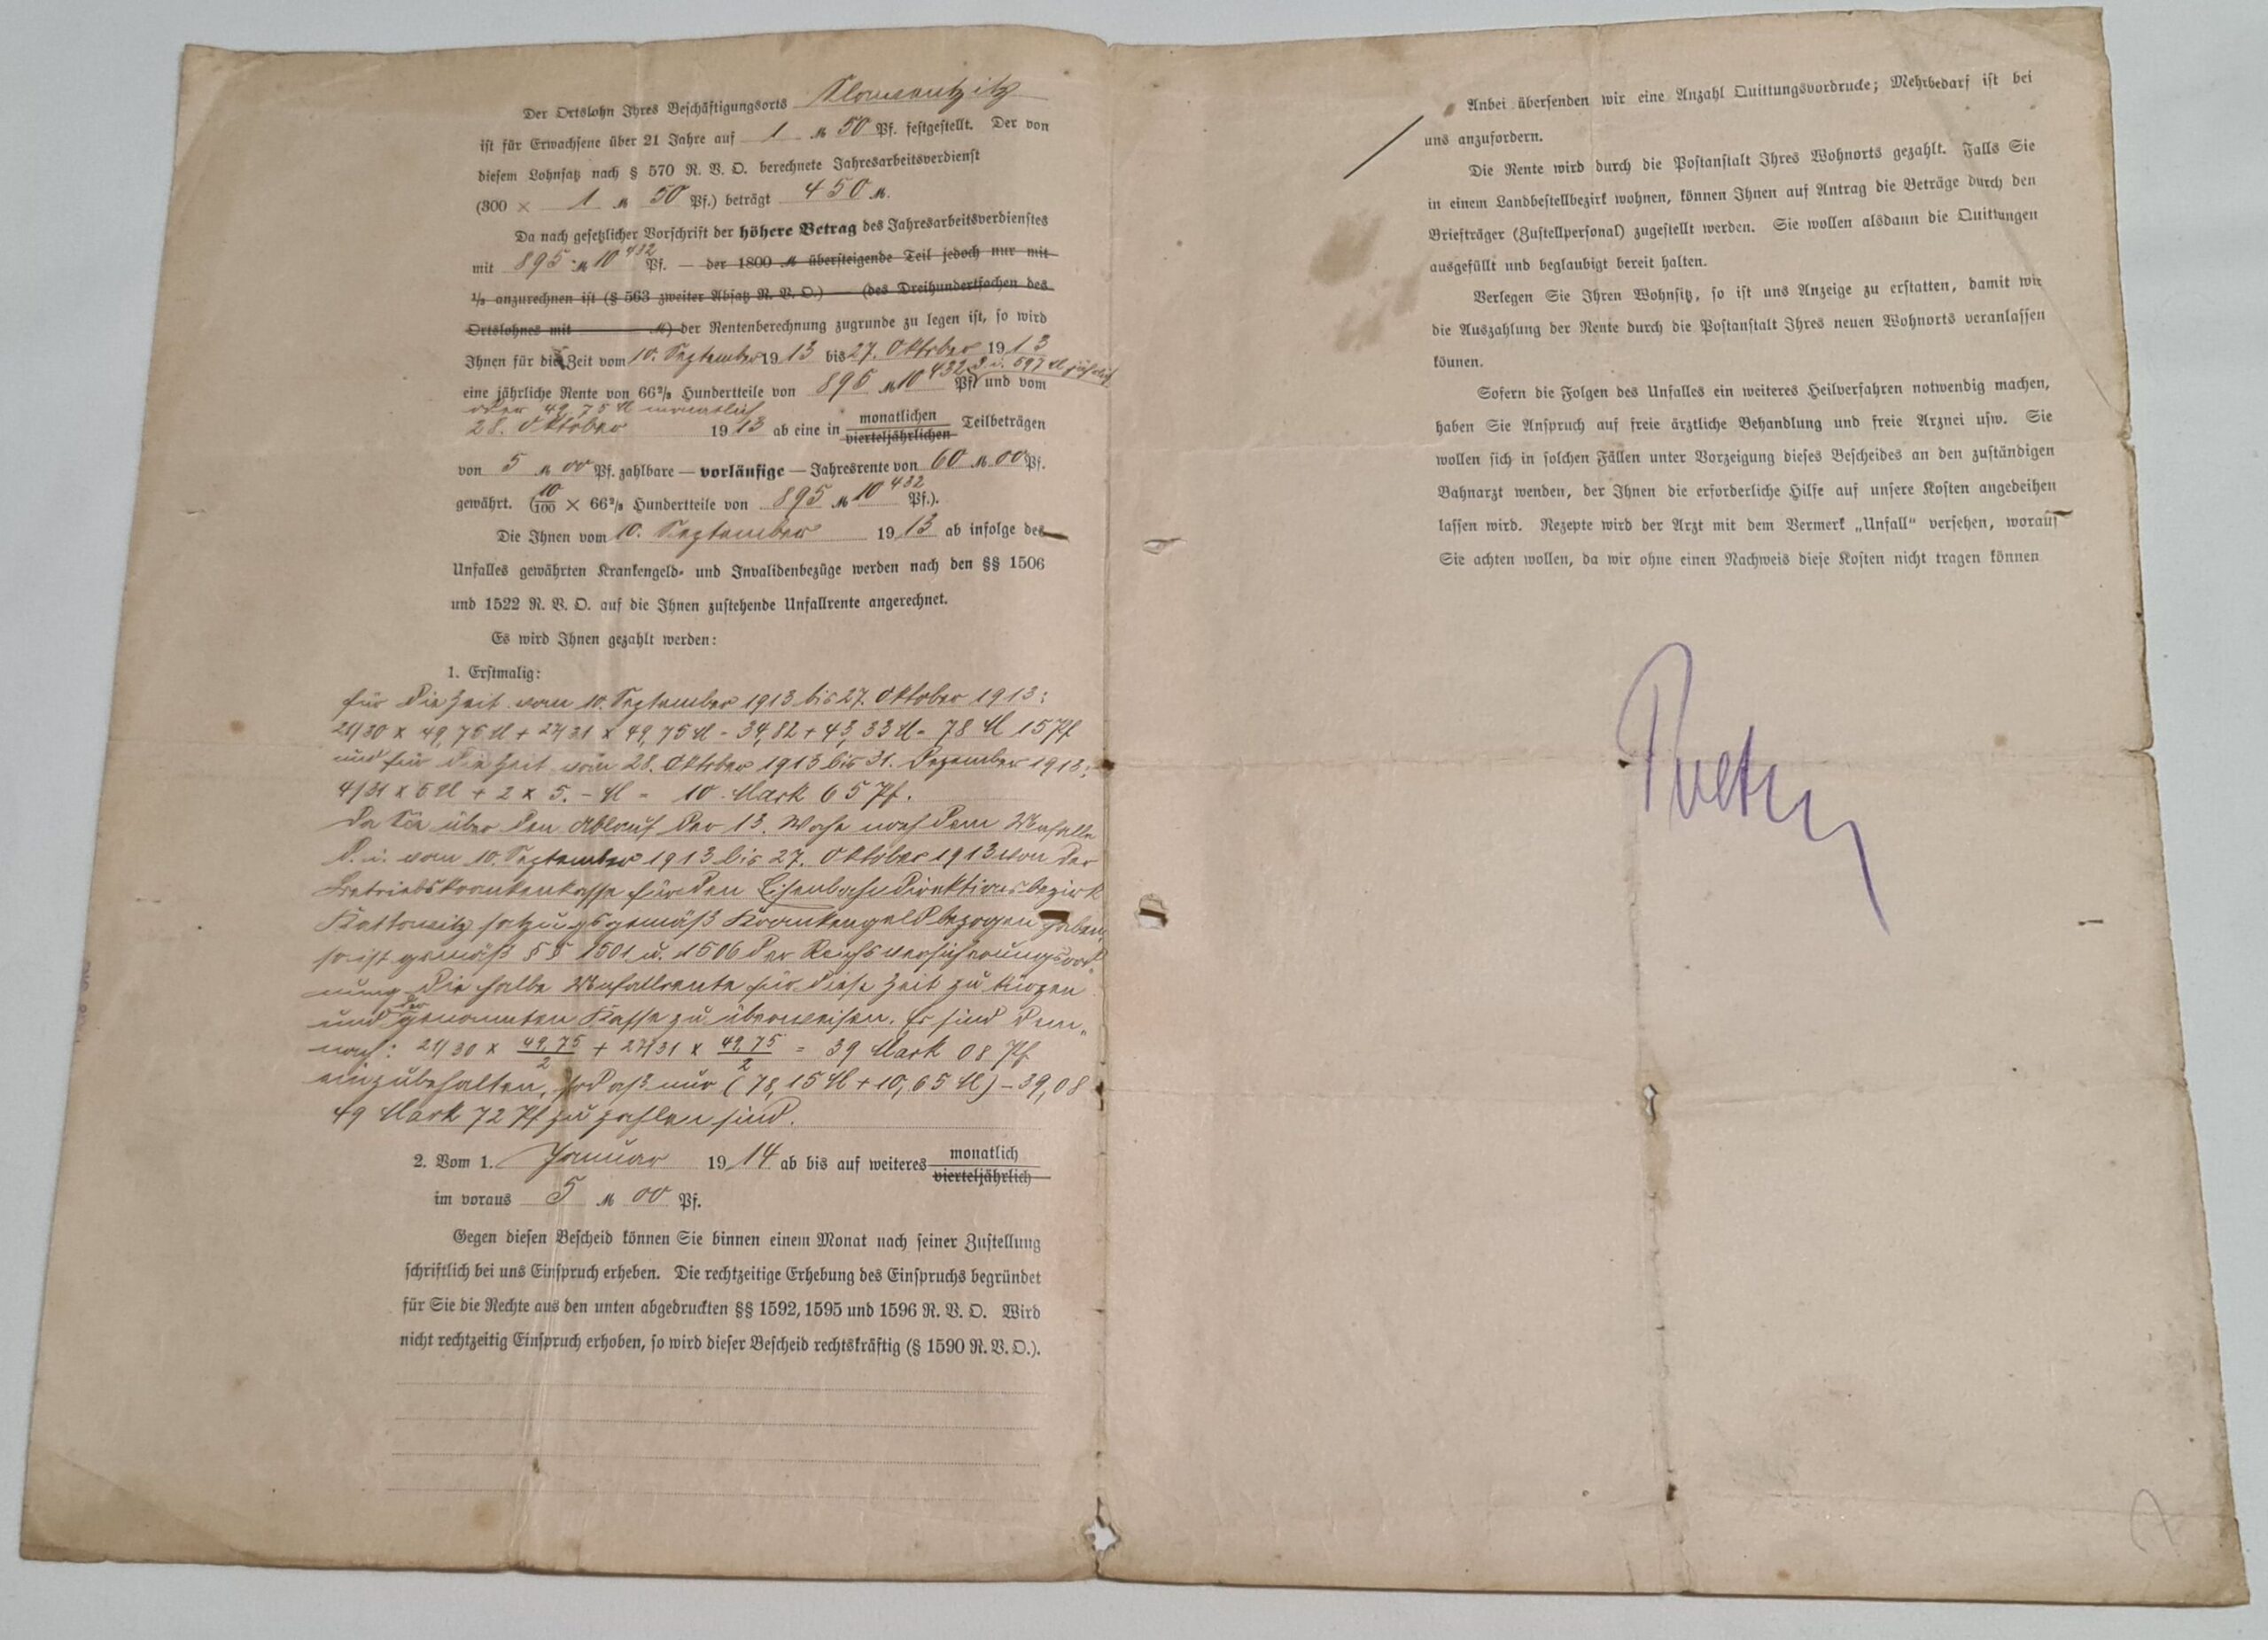 Der Ortslohn Ihres Beschäftigungsorts Slawentzitz
ist für Erwachsene über 21 Jahre auf 1 M 50 Pf. festgestellt. Der von
diesem Lohnsatz nach § 570 R. V. O. berechnete Jahresarbeitsverdienst
(300 × 1 M 50 Pf.) beträgt 450 M.
Da nach gesetzlicher Vorschrift der höhere Betrag des Jahresarbeitsverdienstes
mit 895 M 10 432 Pf. — der 1800 M übersteigende Teil jedoch nur mit
1/3 anzurechnen ist (§ 563 zweiter Absatz R. V. O.) — (des Dreihundertfachen des
Ortslohnes mit M) der Rentenberechnung zugrunde zu legen ist, so wird
Ihnen für die Zeit vom 10. September 1913 bis 27. Oktober 1913
eine jährliche Rente von 66 2/3 Hundertteile von 895 M 10 432 Pf. d. i. 597 M jährlich und vom
oder 49,75 M monatlich
28. Oktober 1913 ab eine in monatlichen vierteljährlichen Teilbeträgen
von 5 M 00 Pf. zahlbare — vorläufige — Jahresrente von 60 M 00 Pf.
gewährt. (10/100 × 66 2/3 Hundertteile von 895 M 10 432 Pf.).
Die Ihnen vom 10. September 1913 ab infolge des
Unfalles gewährten Krankengeld- und Invalidenbezüge werden nach den §§ 1506
und 1522 R. V. O. auf die Ihnen zustehende Unfallrente angerechnet.
Es wird Ihnen gezahlt werden:
1. Erstmalig:
für die Zeit vom 10. September 1913 bis 27. Oktober 1913:
21/30 x 49,75 M + 27/31 x 49,75 M = 34,82 + 43,33 M = 78 M 15 Pf
und für die Zeit vom 28. Oktober 1913 bis 31. Dezember 1913:
4/31 x 5 M + 2 x 5.- M = 10 Mark 65 Pf.
Da Sie über den Ablauf der 13. Woche nach dem Unfalle
d. i. vom 10. September 1913 bis 27. Oktober 1913 von der
Betriebskrankenkasse für den Eisenbahndirektionsbezirk
Kattowitz satzungsgemäß Krankengeld bezogen haben,
so ist gemäß §§ 1501 u. 1506 der Reichsversicherungsord-
nung die halbe Unfallrente für diese Zeit zu kürzen
und der genannten Kasse zu überweisen. Es sind dem-
nach: 21/30 x 49,75/2 + 27/31 x 49,75/2 = 39 Mark 08 Pf
einzubehalten, sodaß nur (78,15 M + 10,65 M) - 39,08
49 Mark 72 Pf zu zahlen sind.
2. Vom 1. Januar 1914 ab bis auf weiteres monatlich vierteljährlich
im voraus 5 M 00 Pf.
Gegen diesen Bescheid können Sie binnen einem Monat nach seiner Zustellung
schriftlich bei uns Einspruch erheben. Die rechtzeitige Erhebung des Einspruchs begründet
für Sie die Rechte aus den unten abgedruckten §§ 1592, 1595 und 1596 R. V. O. Wird
nicht rechtzeitig Einspruch erhoben, so wird dieser Bescheid rechtskräftig (§ 1590 R. V. O.).
Anbei übersenden wir eine Anzahl Quittungsvordrucke; Mehrbedarf ist bei
uns anzufordern.
Die Rente wird durch die Postanstalt Ihres Wohnorts gezahlt. Falls Sie
in einem Landbestellbezirk wohnen, können Ihnen auf Antrag die Beträge durch den
Briefträger (Zustellpersonal) zugestellt werden. Sie wollen alsdann die Quittungen
ausgefüllt und beglaubigt bereit halten.
Verlegen Sie Ihren Wohnsitz, so ist uns Anzeige zu erstatten, damit wir
die Auszahlung der Rente durch die Postanstalt Ihres neuen Wohnorts veranlassen
können.
Sofern die Folgen des Unfalles ein weiteres Heilverfahren notwendig machen,
haben Sie Anspruch auf freie ärztliche Behandlung und freie Arznei usw. Sie
wollen sich in solchen Fällen unter Vorzeigung dieses Bescheides an den zuständigen
Bahnarzt wenden, der Ihnen die erforderliche Hilfe auf unsere Kosten angedeihen
lassen wird. Rezepte wird der Arzt mit dem Vermerk „Unfall“ versehen, worauf
Sie achten wollen, da wir ohne einen Nachweis diese Kosten nicht tragen können